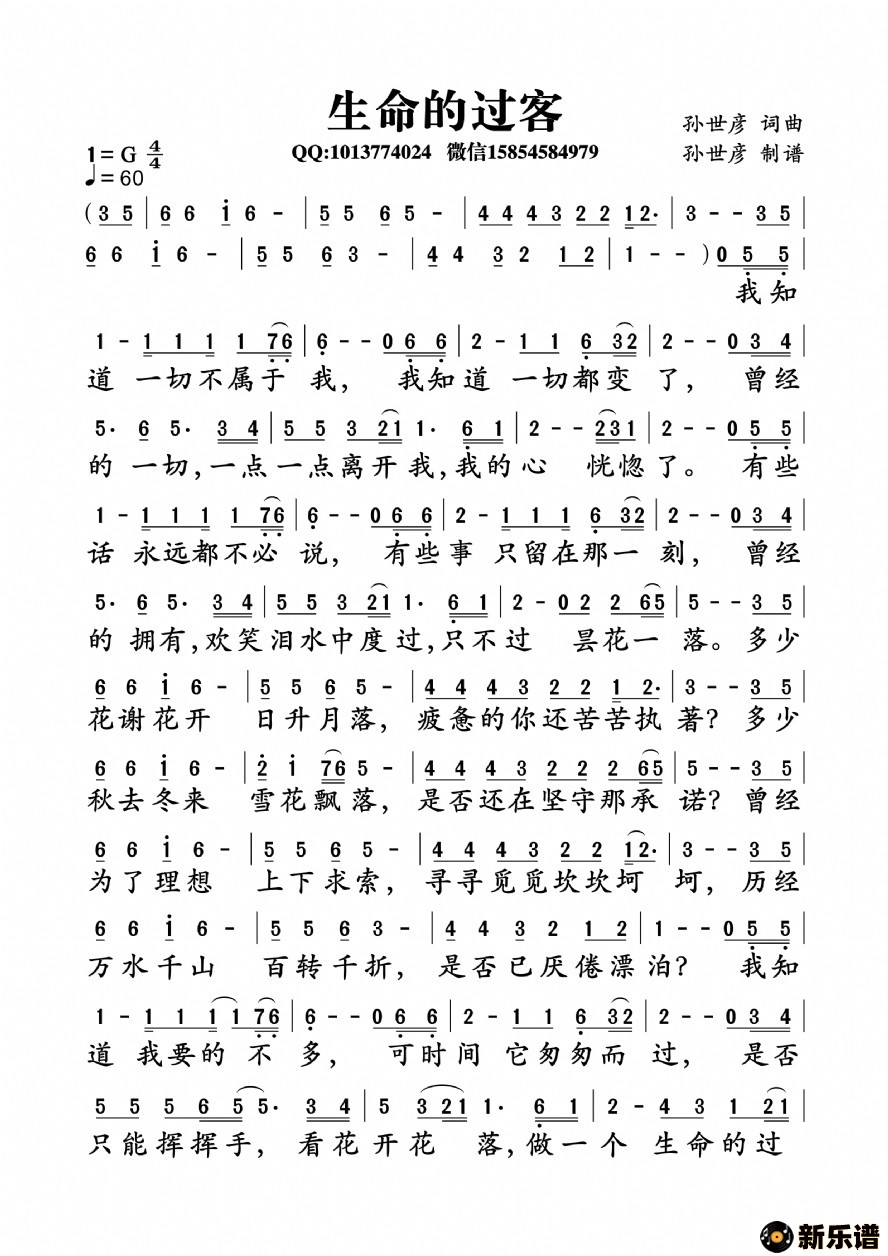 生命的过客
孙世彦 词曲
1=G 4/4
QQ:1013774024 微信15854584979
孙世彦 制谱
♩=60
(3 5 | 6 6 i 6 - | 5 5 6 5 - | 4 4 4 3 2 2 12· | 3 - - 3 5 |
6 6 i 6 - | 5 5 6 3 - | 4 4 3 2 1 2 | 1 - - ) 0 5 5 |
我知
1 - 1 1 1 1 76 | 6 - - 0 6 6 | 2 - 1 1 6 32 | 2 - - 0 3 4 |
道 一切不属于 我， 我知道 一切都变 了， 曾经
5· 6 5· 3 4 | 5 5 3 21 1· 6 1 | 2 - - 231 | 2 - - 0 5 5 |
的 一切,一点一点离开我,我的心 恍惚了。 有些
1 - 1 1 1 1 76 | 6 - - 0 6 6 | 2 - 1 1 1 6 32 | 2 - - 0 3 4 |
话 永远都不必 说， 有些事 只留在那一 刻， 曾经
5· 6 5· 3 4 | 5 5 3 21 1· 6 1 | 2 - 0 2 2 65 | 5 - - 3 5 |
的 拥有,欢笑泪水中度过,只不过 昙花一 落。多少
6 6 i 6 - | 5 5 6 5 - | 4 4 4 3 2 2 12· | 3 - - 3 5 |
花谢花开 日升月落， 疲惫的你还苦苦执 著？多少
6 6 i 6 - | 2 i 76 5 - | 4 4 4 3 2 2 2 65 | 5 - - 3 5 |
秋去冬来 雪花飘落， 是否还在坚守那承 诺？曾经
6 6 i 6 - | 5 5 6 5 - | 4 4 4 3 2 2 12· | 3 - - 3 5 |
为了理想 上下求索， 寻寻觅觅坎坎坷 坷， 历经
6 6 i 6 - | 5 5 6 3 - | 4 4 3 2 1 2 | 1 - - 0 5 5 |
万水千山 百转千折， 是否已厌倦漂泊？ 我知
1 - 1 1 1 1 76 | 6 - - 0 6 6 | 2 - 1 1 6 32 | 2 - - 0 3 4 |
道 我要的 不 多， 可时间 它匆匆而 过， 是否
5 5 5 6 5 5· 3 4 | 5 3 21 1· 6 1 | 2 - 4 3 1 21 |
只能挥挥手， 看花开花 落,做一个 生命的过
新乐谱